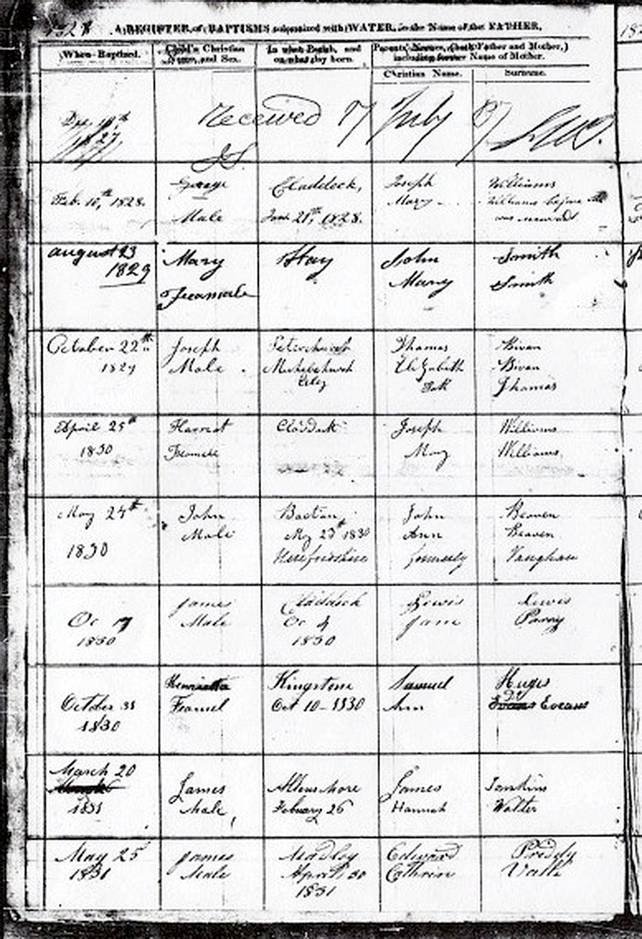 A REGISTER of BAPTISMS solemnized with WATER, in the Name of the FATHER,
When Baptized.
Child's Christian Name, and Sex.
In what Parish, and on what day born.
Parents' Names, (both Father and Mother,) including former Name of Mother.
Christian Name.
Surname.
1827
Received 17 July
Feb. 10th, 1828.
George
Male
Claddock,
Jan. 21st, 1828.
Joseph
Mary
Williams
Williams before she
was married
August 23
1829
Mary
Feamale
Hay
John
Mary
Smith
Smith
October 22th
1829
Joseph
Male
Thomas
Elizabeth
Bivan
Bivan
Thomas
April 25th
1830
Harriet
Joseph
Mary
Williams
Williams
May 24th
1830
John
Male
Bacton
May 2d 1830
Herefordshire
John
Ann
formerly
Beaven
Beaven
Vaughan
Oc 17
1830
James
Male
Claddock
Oc 4
1830
Lewis
Jane
Lewis
Parry
October 31
1830
Henrietta
Feamel
Kingstone
Oct 10-1830
Samuel
Ann
Huges
Evans
March 20
1831
James
Male,
Allensmore
Febuary 26
James
Hannah
Jenkins
Walter
May 25
1831
James
Male
Madley
April 30
1831
Edward
Cathrin
Preddy